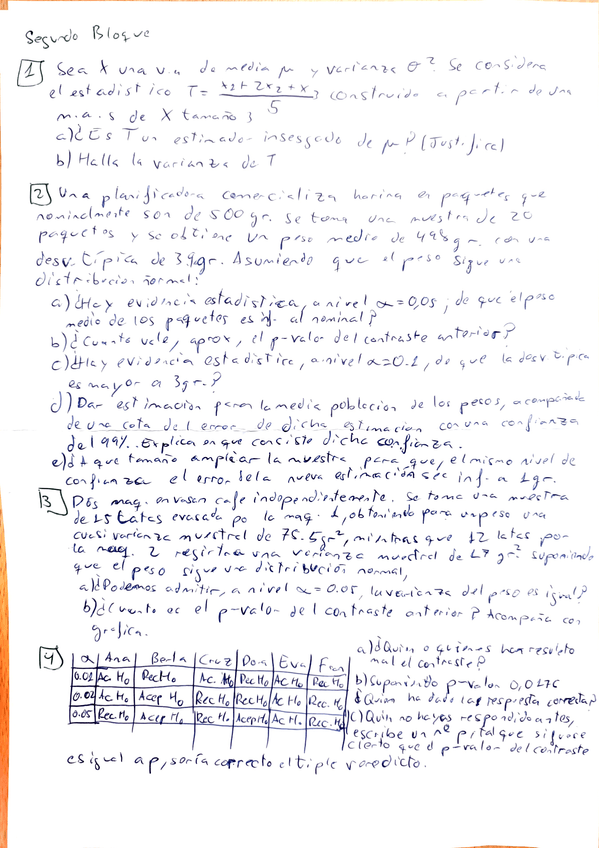 Segundo Bloque
1 Sea X una v.a de media μ y varianza σ². Se considera
el estadistico T = x1 + 2x2 + x3 / 5 construido a partir de una
m.a.s de X tamaño 3
a) ¿Es T un estimador insesgado de μ? (Justifica)
b) Halla la varianza de T
2 Una planificadora comercializa harina en paquetes que
nominalmente son de 500 gr. Se toma una muestra de 20
paquetes y se obtiene un peso medio de 498 gr. con una
desv. típica de gr. Asumiendo que el peso sigue una
distribución normal:
a) ¿Hay evidencia estadistica, a nivel α = 0,05, de que el peso
medio de los paquetes es inf. al nominal?
b) ¿Cuanto vale, aprox, el p-valor del contraste anterior?
c) ¿Hay evidencia estadistica, a nivel α = 0.1, de que la desv tipica
es mayor a 3 gr.?
d) Dar estimación para la media poblacion de los pesos, acompañada
de una cota del error de dicha estimacion con una confianza
del 99%. Explica en que consiste dicha confianza.
e) ¿A que tamaño ampliar la muestra para que, el mismo nivel de
confianza el error de la nueva estimación sea inf. a 1 gr.
3 Dos maq. envasan cafe independientemente. Se toma una muestra
de 15 latas evasada po la maq. 1, obteniendo para un peso una
cuasivarianza muestral de 75.5 gr², mientras que 12 latas por
la maq. 2 registra una varianza muestral de gr² suponiendo
que el peso sigue una distribución normal,
a) ¿Podemos admitir, a nivel α = 0.05, la varianza del peso es igual?
b) ¿Cuanto es el p-valor del contraste anterior? Acompaña con
grafica.
4 α Ana Berta Cruz Dora Eva Fran
0.01 Ac H₀ Rec H₀ Ac. H₀ Rec H₀ Ac H₀ Rec H₀
0.02 Ac H₀ Acep H₀ Rec H₀ Rec H₀ Ac H₀ Rec. H₀
0.05 Rec H₀ Acep H₀ Rec H₀ Acep H₀ Ac H₀ Rec. H₀
a) ¿Quin o quienes han resuelto
mal el contraste?
b) Suponiendo p-valor 0,0176
¿Quien ha dado las respuesta correcta?
c) Quin no hayas respondido antes,
escribe un nº p, tal que si fuese
cierto que el p-valor del contraste
es igual a p, sería correcto el tiple veredicto.